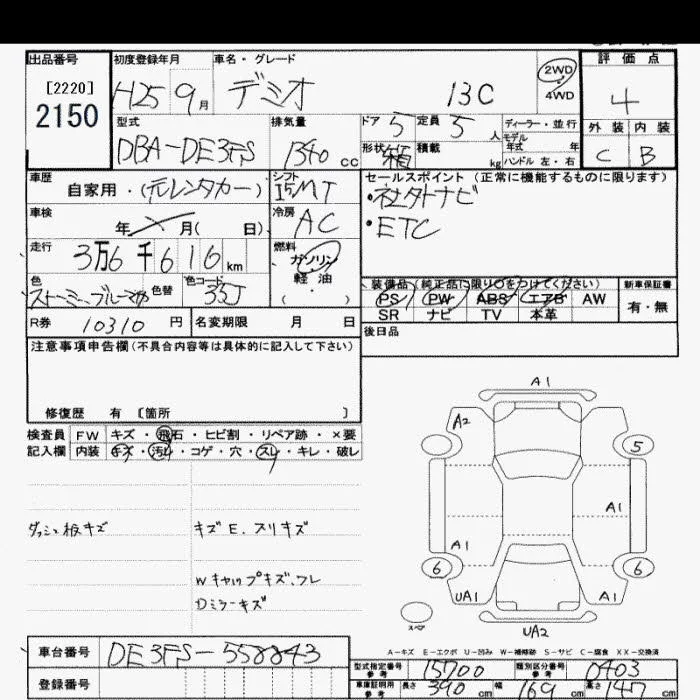 出品番号
[2220]
2150
初度登録年月
H25 9 月
車名・グレード
デミオ 13C
2WD
4WD
評価点
4
外装 内装
C B
型式
DBA-DE3FS
排気量
1340 cc
ドア 5
定員 5 人
ディーラー・並行
モデル
年式 年
形状 箱
積載 kg
ハンドル 左・右
車歴
自家用・(元レンタカー)
シフト
I5MT
車検
年 月( 日)
冷房
AC
走行
3万6千616 km
燃料
ガソリン
軽油
・
( )
色
ストーミーブルーマイカ
色替
色コード
35J
R券 10310 円
名変期限 月 日
セールスポイント (正常に機能するものに限ります)
・社外ナビ
・ETC
装備品(純正品に限り○をつけてください)
PS PW ABS エアB AW
SR ナビ TV 本革
新車保証書
有・無
後日品
注意事項申告欄(不具合内容等は具体的に記入して下さい)
修復歴 有 〔箇所 〕
検査員
記入欄
FW キズ・飛石・ヒビ割・リペア跡・×要
内装 キズ・汚れ・コゲ・穴・スレ・キレ・破レ
ダッシュ板キズ
キズE.スリキズ
Wキャップキズ、ワレ
Dミラーキズ
A1
A2
5
A1
A1
6
6
UA1
A1
スペア
UA2
A-キズ E-エクボ U-凹み W-補修跡 S-サビ C-腐食 XX-交換済
車台番号 DE3FS-558843
登録番号
型式指定番号
参考
15700
類別区分番号
参考
0403
車庫証明用
参考
長さ 390 cm 幅 169 cm 高さ 147 cm